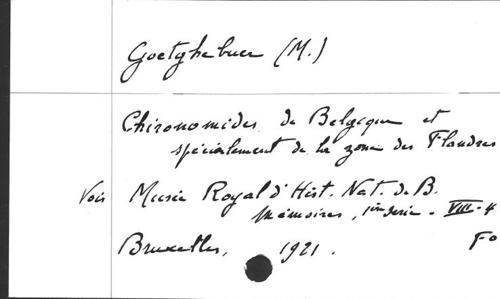 Goetghebuer (M.)
Chironomides de Belgique et
spécialement de la zone des Flandres
Voir Musée Royal d'Hist. Nat. de B.
Mémoires, 1ère série - VIII-4
Bruxelles, 1921. Fo